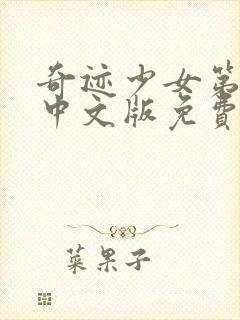 奇迹少女第
中文版免费
菜果子